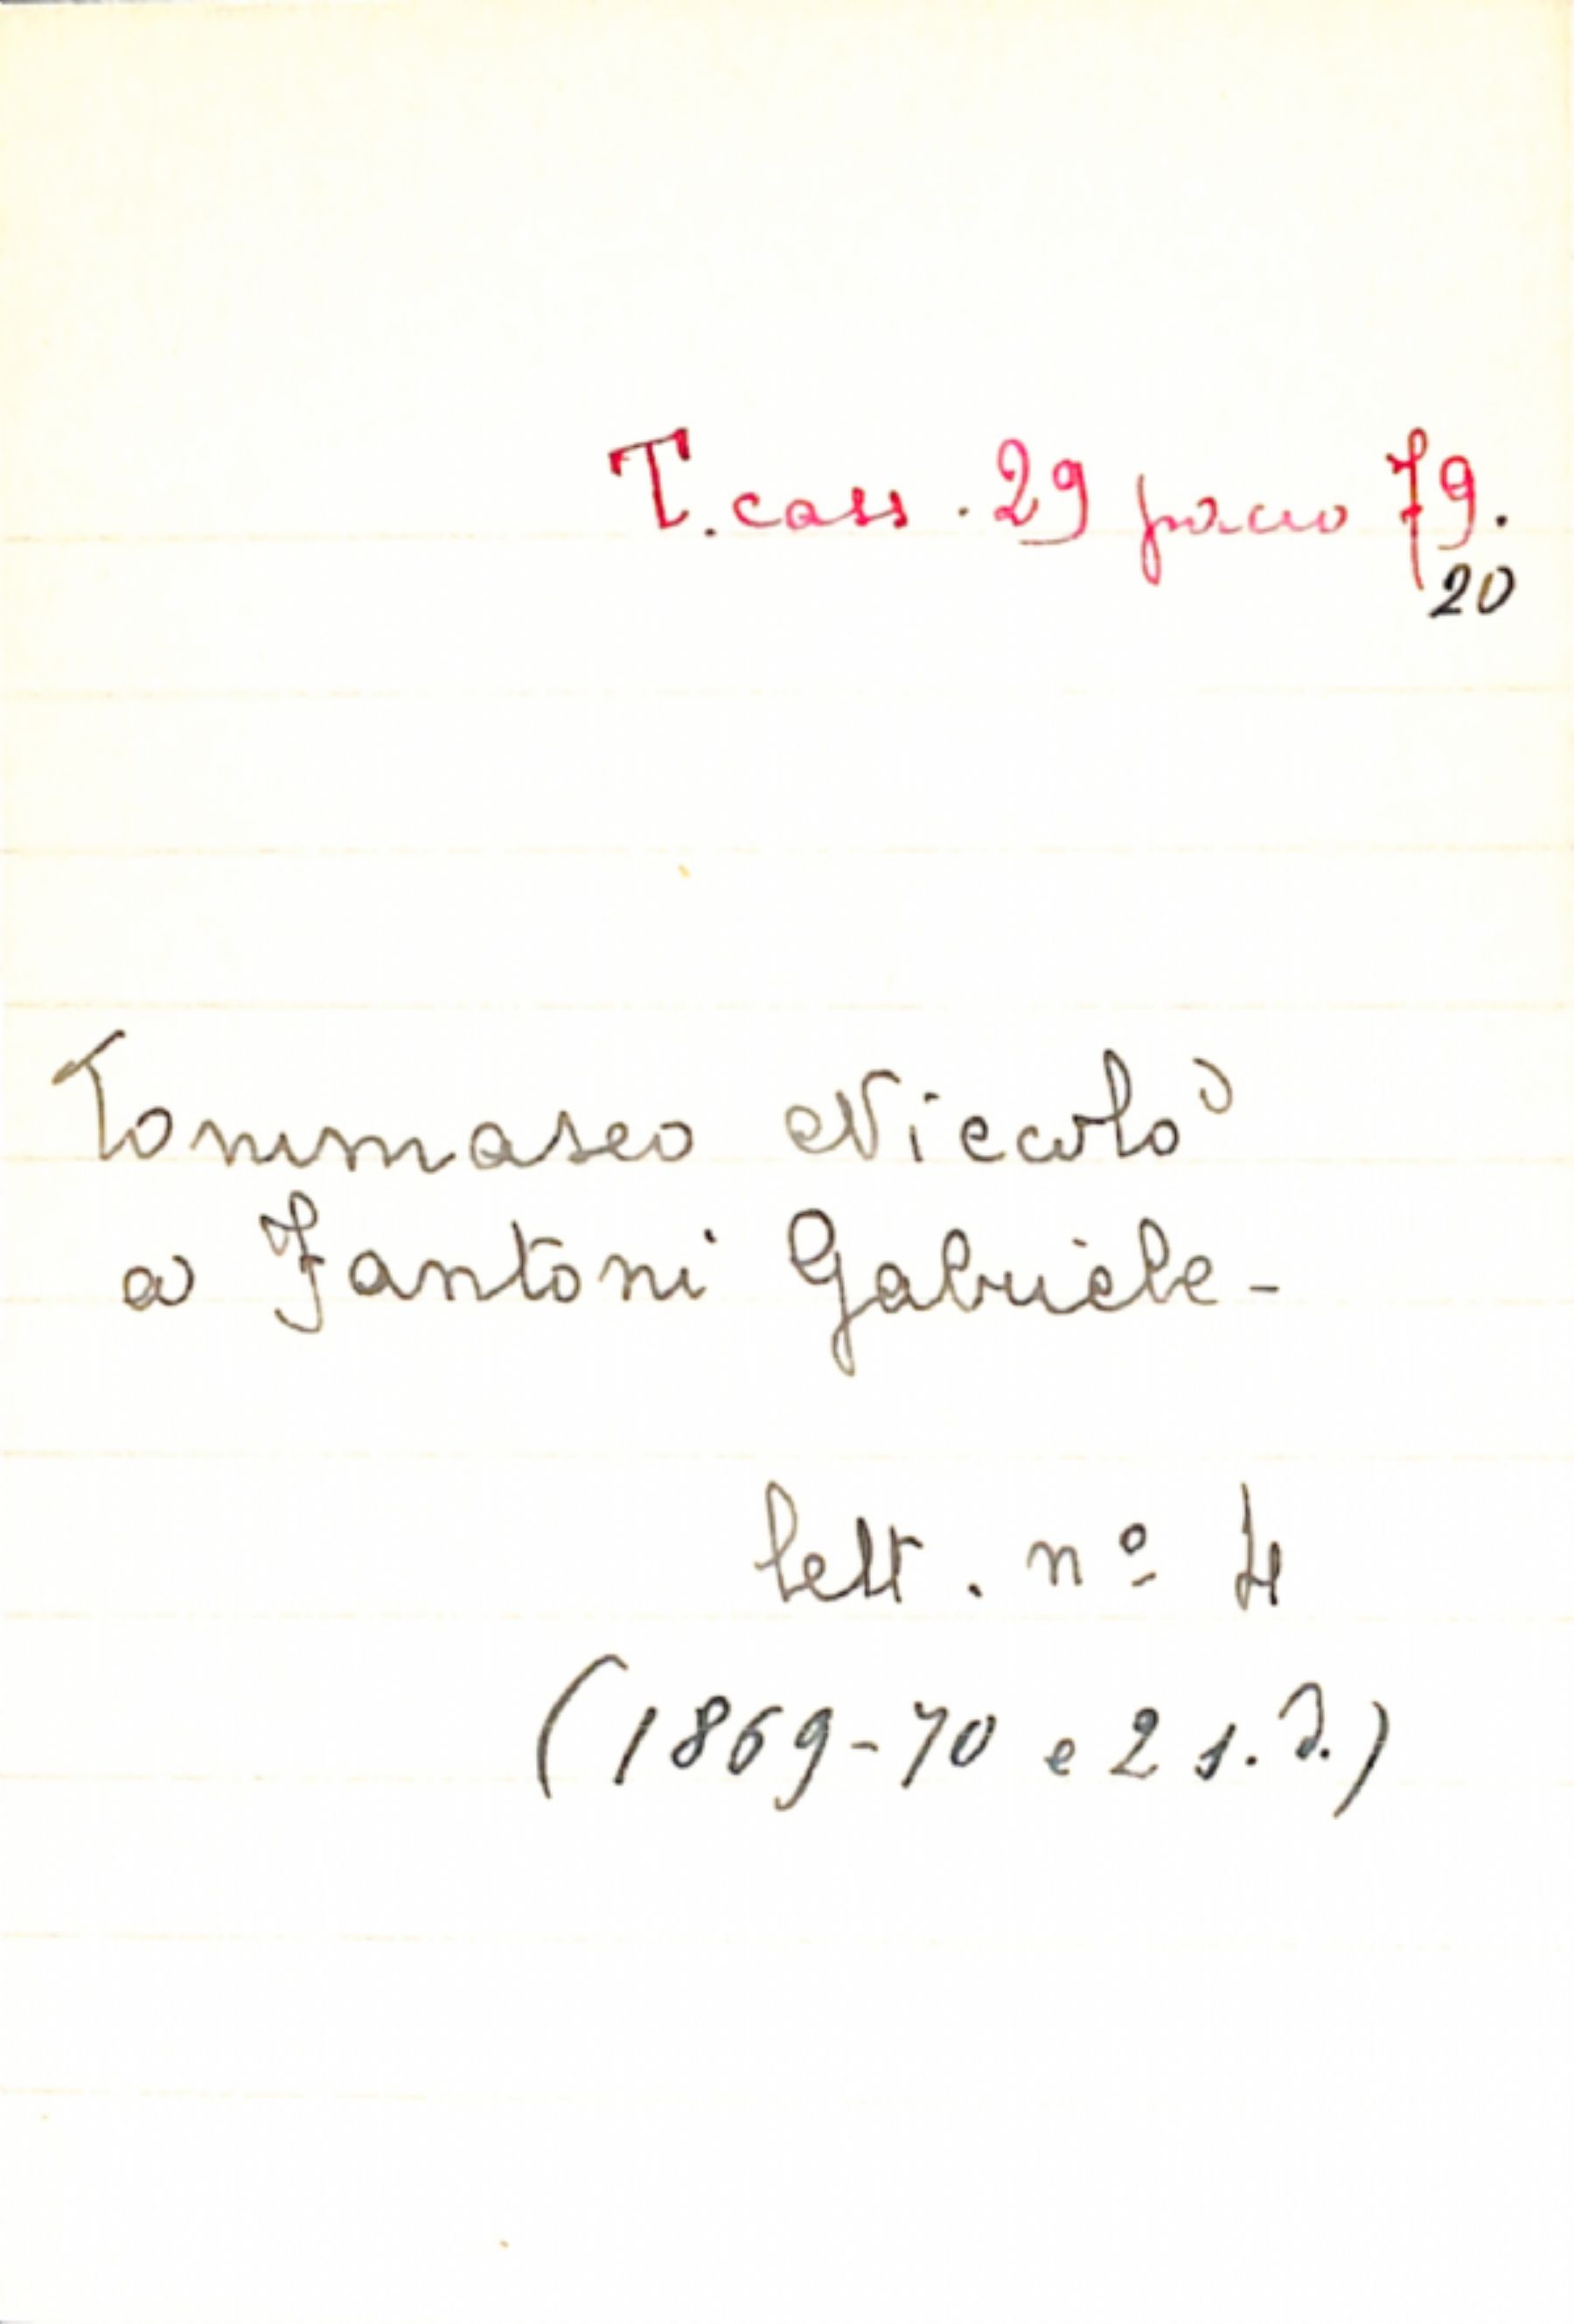 T. cass. 29 pacco 79.
20
Tommaseo Niccolò
a Fantoni Gabriele -
lett. nº 4
(1869-70 e 2 s.d.)